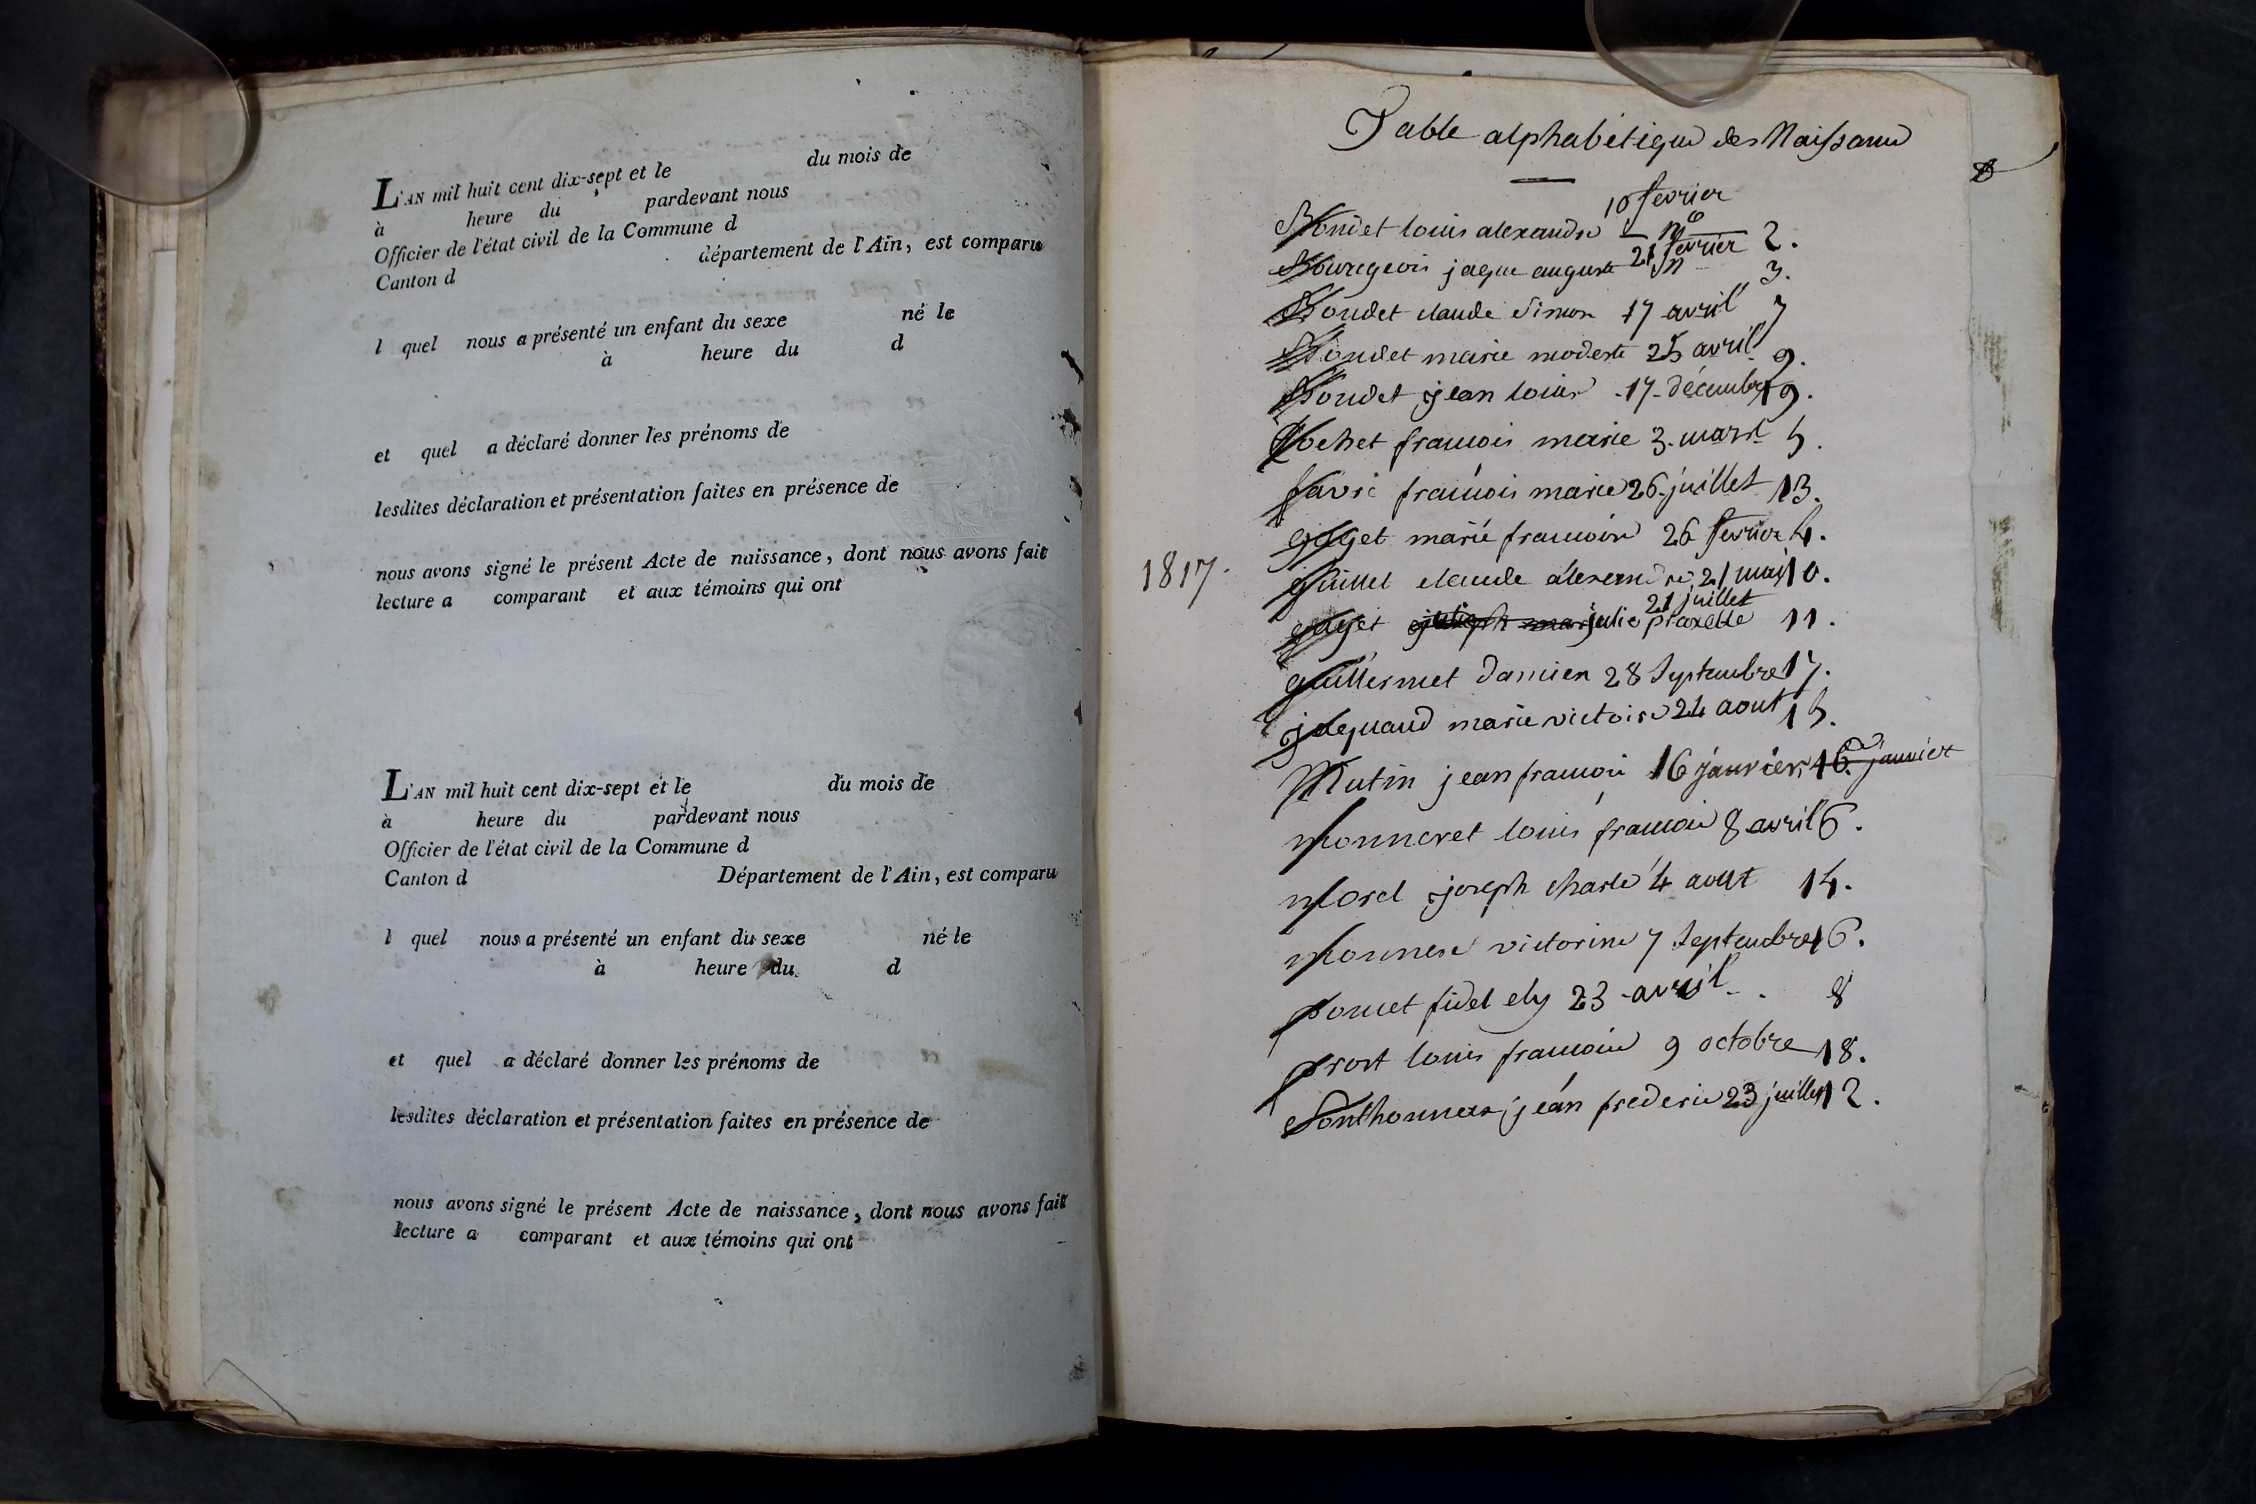 L'AN mil huit cent dix-sept et le du mois de
à heure du pardevant nous
Officier de l'état civil de la Commune d
Canton d département de l'Ain, est comparu
l quel nous a présenté un enfant du sexe né le
à heure du d
et quel a déclaré donner les prénoms de
lesdites déclaration et présentation faites en présence de
nous avons signé le présent Acte de naissance, dont nous avons fait
lecture a comparant et aux témoins qui ont
L'AN mil huit cent dix-sept et le du mois de
à heure du pardevant nous
Officier de l'état civil de la Commune d
Canton d Département de l'Ain, est comparu
l quel nous a présenté un enfant du sexe né le
à heure du d
et quel a déclaré donner les prénoms de
lesdites déclaration et présentation faites en présence de
nous avons signé le présent Acte de naissance, dont nous avons fait
lecture a comparant et aux témoins qui ont
Table alphabétique des Naissance
10 fevrier
Bondet louis alexandre 2.
21 fevrier
Bourgeois jaque auguste 3.
Boudet claude Simon 17 avril 7
Bondet marie modeste 25 avril 9.
Boudet jean louis 17 décembre 19.
Cochet francois marie 3 mars 5.
favre francois marie 26 juillet 13.
gaget marie francoise 26 fevrier 4.
1817.
guillet claude alexandre 21 mai 10.
21 juillet
gaget julie praxette 11.
guillermet Damien 28 Septembre 17.
jaquand marie victoire 24 aout 15.
Mutin jean francois 16 janvier 16 janvier
Monneret louis francois 8 avril 6.
Morel joseph charle 4 aout 14.
Monneret victorine 7 Septembre 16.
poncet fidel ely 23 avril 8
prost louis francois 9 octobre 18.
Sonthonnax jean frederic 23 juillet 12.